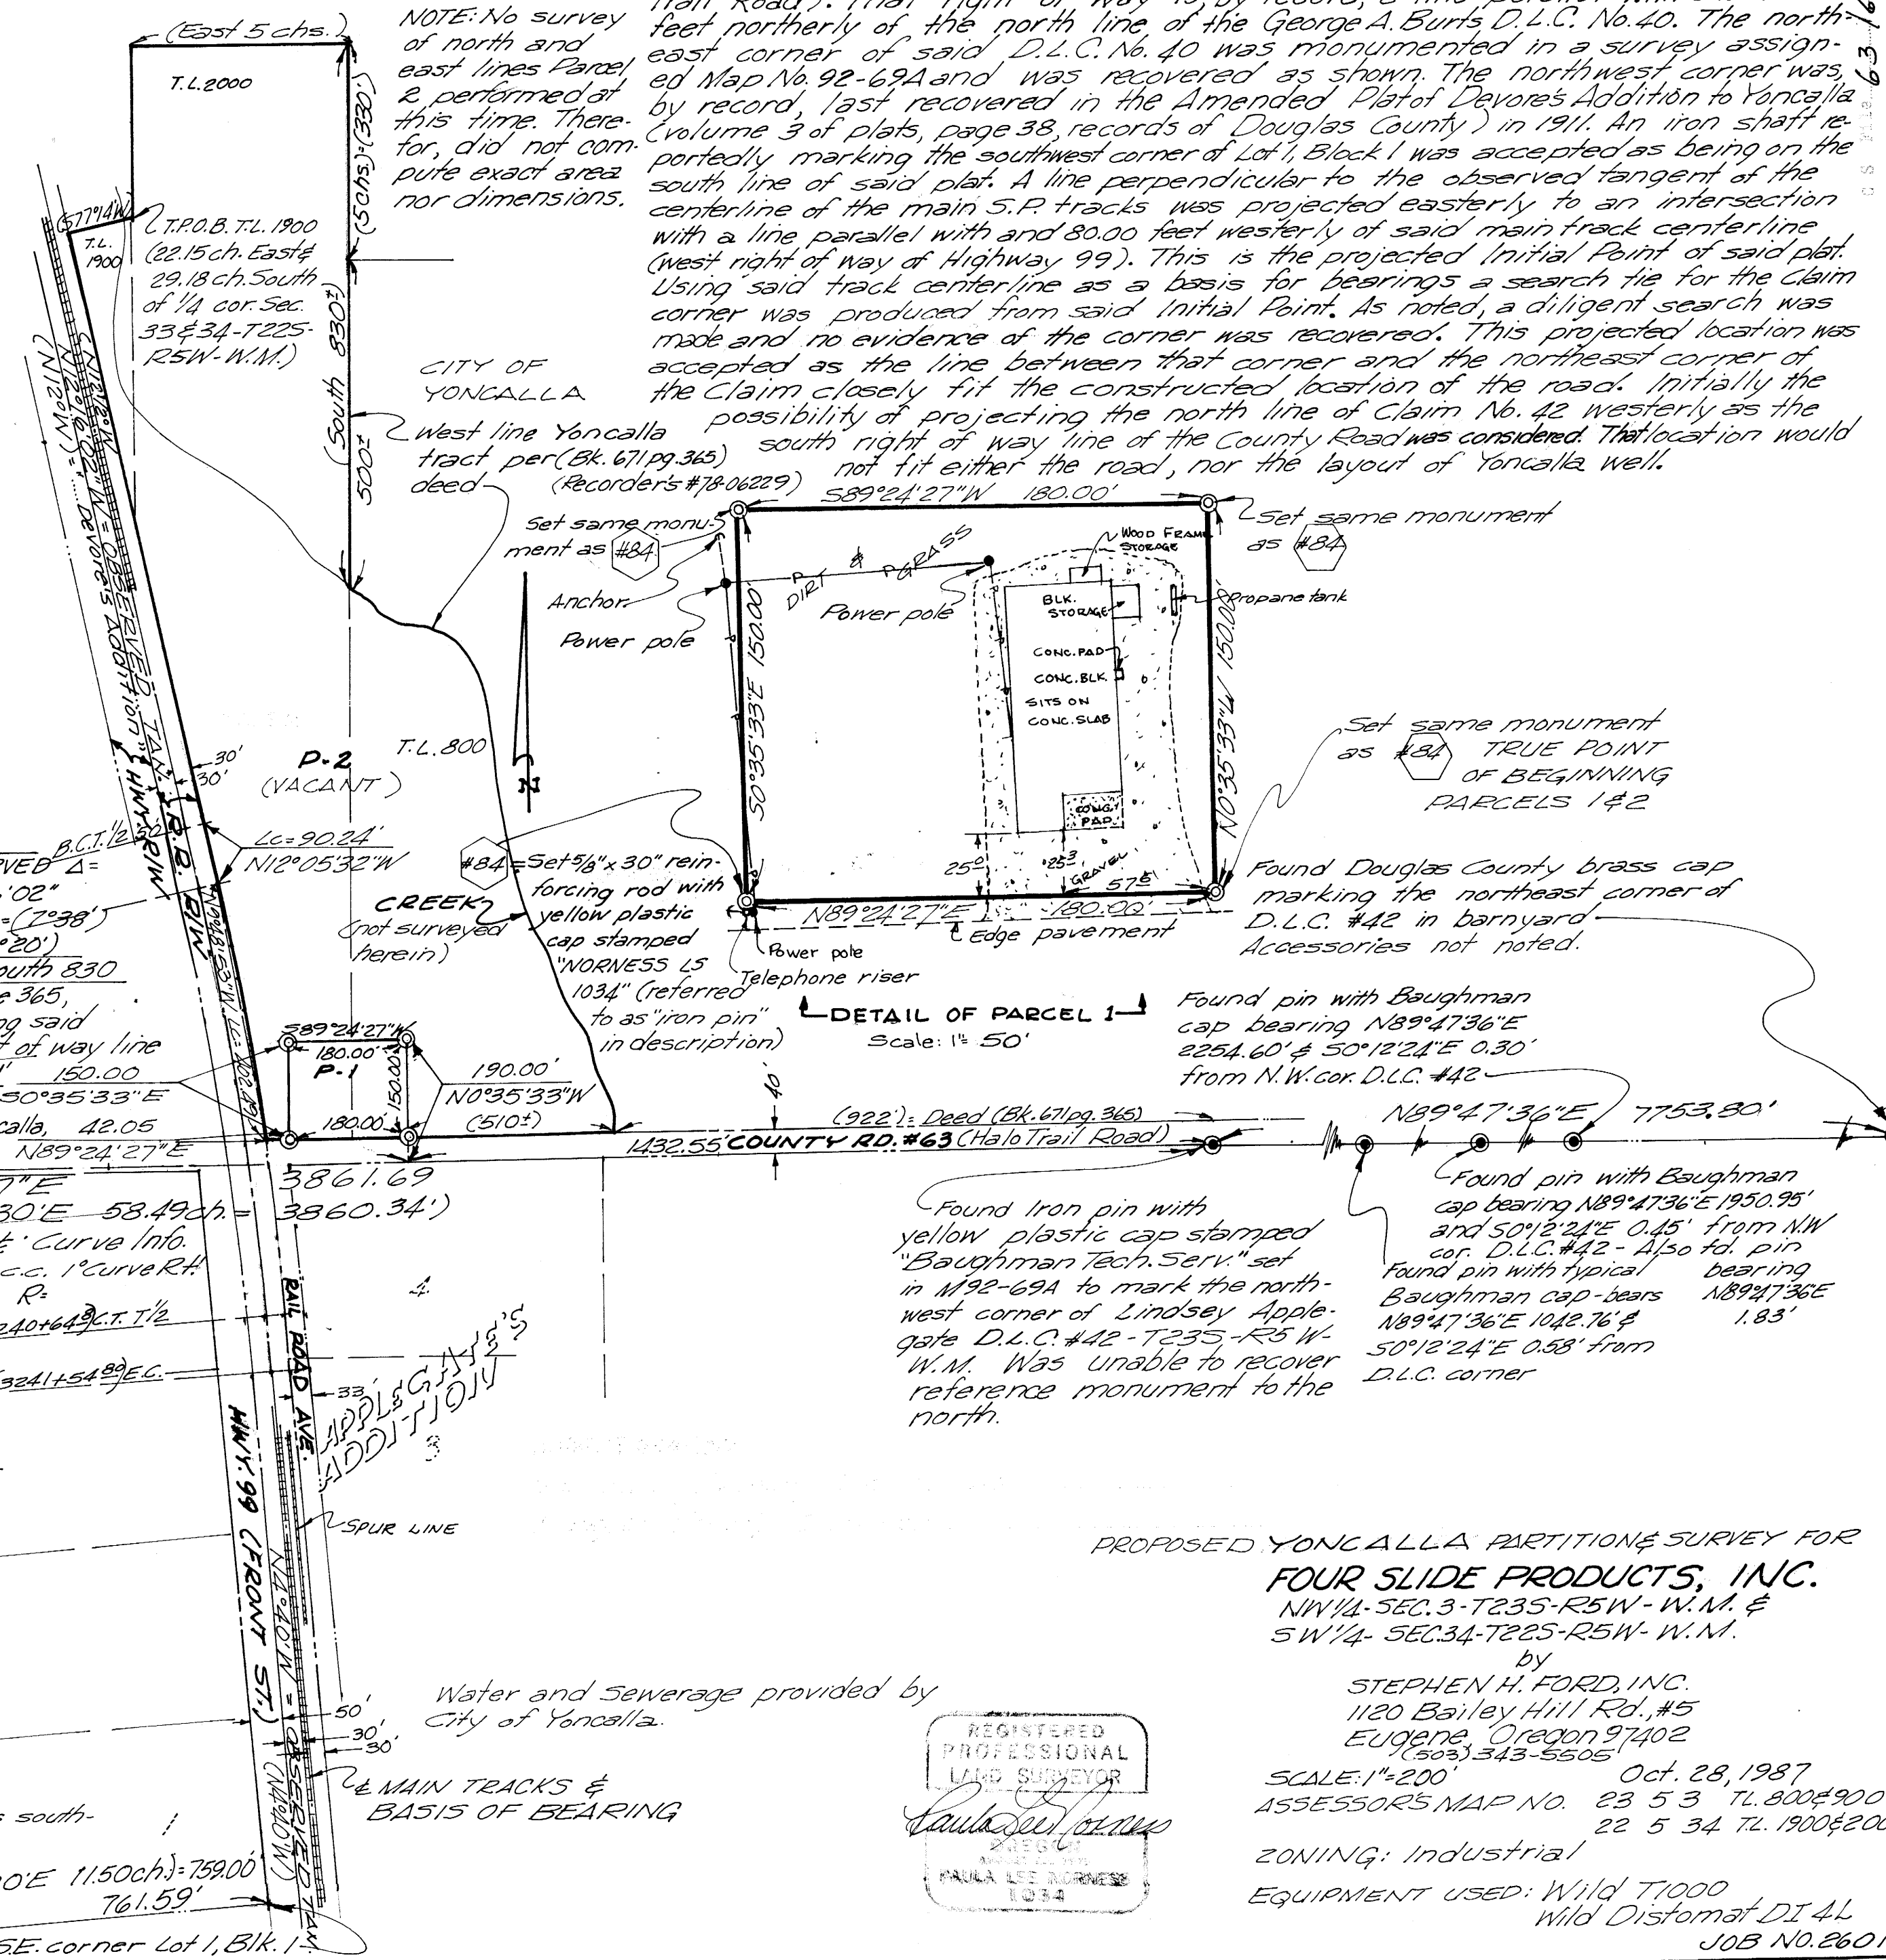 (East 5 chs.)
T.L.2000
(5chs)=(330.')
NOTE: No survey
of north and
east lines Parcel
2 performed at
this time. There-
for, did not com-
pute exact area
nor dimensions.
feet northerly of the north line of the George A. Burts D.L.C. No.40. The north-
east corner of said D.L.C. No. 40 was monumented in a survey assign-
ed Map No. 92-69A and was recovered as shown. The northwest corner was,
by record, last recovered in the Amended Plat of Devore's Addition to Yoncalla
(volume 3 of plats, page 38, records of Douglas County) in 1911. An iron shaft re-
portedly marking the southwest corner of Lot 1, Block 1 was accepted as being on the
south line of said plat. A line perpendicular to the observed tangent of the
centerline of the main S.P. tracks was projected easterly to an intersection
with a line parallel with and 80.00 feet westerly of said main track centerline
(west right of way of Highway 99). This is the projected Initial Point of said plat.
Using said track centerline as a basis for bearings a search tie for the Claim
corner was produced from said Initial Point. As noted, a diligent search was
made and no evidence of the corner was recovered. This projected location was
accepted as the line between that corner and the northeast corner of
the Claim closely fit the constructed location of the road. Initially the
possibility of projecting the north line of Claim No. 42 westerly as the
south right of way line of the County Road was considered. That location would
not fit either the road, nor the layout of Yoncalla well.
63
(S77°14'W)
T.L.
1900
T.P.O.B. T.L. 1900
(22.15 ch. East &
29.18 ch. South
of 1/4 cor. Sec.
33 & 34-T22S-
R5W-W.M.)
(South 830±)
500±
CITY OF
YONCALLA
West line Yoncalla
tract per (Bk. 671 pg. 365)
deed (Recorder's #78-06229)
(N12°W)=
"Devore's Addition"
HWY. R/W
R.R. R/W
30'
30'
P-2
(VACANT)
T.L. 800
N
Lc=90.24'
N12°05'32"W
B.C.T. 1/2
CREEK
(not surveyed
herein)
S89°24'27"W 180.00'
Set same monu-
ment as #84
Set same monument
as #84
Anchor
Power pole
DIRT & GRASS
Power pole
WOOD FRAME
STORAGE
BLK.
STORAGE
Propane tank
CONC. PAD
CONC. BLK.
SITS ON
CONC. SLAB
S0°35'33"E 150.00'
N0°35'33"W 150.00'
CONC.
PAD
GRAVEL
N89°24'27"E 180.00'
Edge pavement
Power pole
Telephone riser
Set same monument
as #84 TRUE POINT
OF BEGINNING
PARCELS 1 & 2
#84 = Set 5/8" x 30" rein-
forcing rod with
yellow plastic
cap stamped
"NORNESS LS
1034" (referred
to as "iron pin"
in description)
Found Douglas County brass cap
marking the northeast corner of
D.L.C. #42 in barnyard
Accessories not noted.
DETAIL OF PARCEL 1
Scale: 1"= 50'
Found pin with Baughman
cap bearing N89°47'36"E
2254.60' & S0°12'24"E 0.30'
from N.W. cor. D.L.C. #42
outh 830
e 365,
ng said
t of way line
150.00
S0°35'33"E
S89°24'27"W
180.00'
P-1
150.00'
180.00'
190.00'
N0°35'33"W
(510±)
calla, 42.05
N89°24'27"E
40'
(922'): Deed (Bk. 671 pg. 365)
1432.55 COUNTY RD. #63 (Halo Trail Road)
N89°47'36"E 7753.80'
3861.69
30'E 58.49ch. = 3860.34')
Curve Info.
c.c. 1° Curve Rt.
R=
C.T. T 1/2
E.C.
Found Iron pin with
yellow plastic cap stamped
"Baughman Tech. Serv." set
in M92-69A to mark the north-
west corner of Lindsey Apple-
gate D.L.C. #42-T23S-R5W-
W.M. Was unable to recover
reference monument to the
north.
Found pin with Baughman
cap bearing N89°47'36"E 1950.95'
and S0°12'24"E 0.45' from N.W
cor. D.L.C. #42 - Also fd. pin
bearing
N89°47'36"E
1.83'
Found pin with typical
Baughman cap-bears
N89°47'36"E 1042.76' &
S0°12'24"E 0.58' from
D.L.C. corner
RAIL ROAD AVE.
4
33'
APPLEGATE'S
ADDITION
3
HWY. 99 (FRONT ST.)
SPUR LINE
N14°40'W = OBSERVED TAN.
(N14°40'W)
50'
30'
30'
℄ MAIN TRACKS &
BASIS OF BEARING
Water and Sewerage provided by
City of Yoncalla.
south-
0'E 11.50ch.)=759.00'
761.59'
S.E. corner Lot 1, Blk. 1
REGISTERED
PROFESSIONAL
LAND SURVEYOR
OREGON
PAULA LEE NORNESS
1034
PROPOSED YONCALLA PARTITION & SURVEY FOR
FOUR SLIDE PRODUCTS, INC.
NW 1/4-SEC. 3-T23S-R5W-W.M. &
SW 1/4-SEC. 34-T22S-R5W-W.M.
by
STEPHEN H. FORD, INC.
1120 Bailey Hill Rd., #5
Eugene, Oregon 97402
(503) 343-5505
SCALE: 1"=200' Oct. 28, 1987
ASSESSOR'S MAP NO. 23 5 3 TL. 800 & 900
22 5 34 TL. 1900 & 200
ZONING: Industrial
EQUIPMENT USED: Wild T1000
Wild Distomat DI 4L
JOB NO. 2601